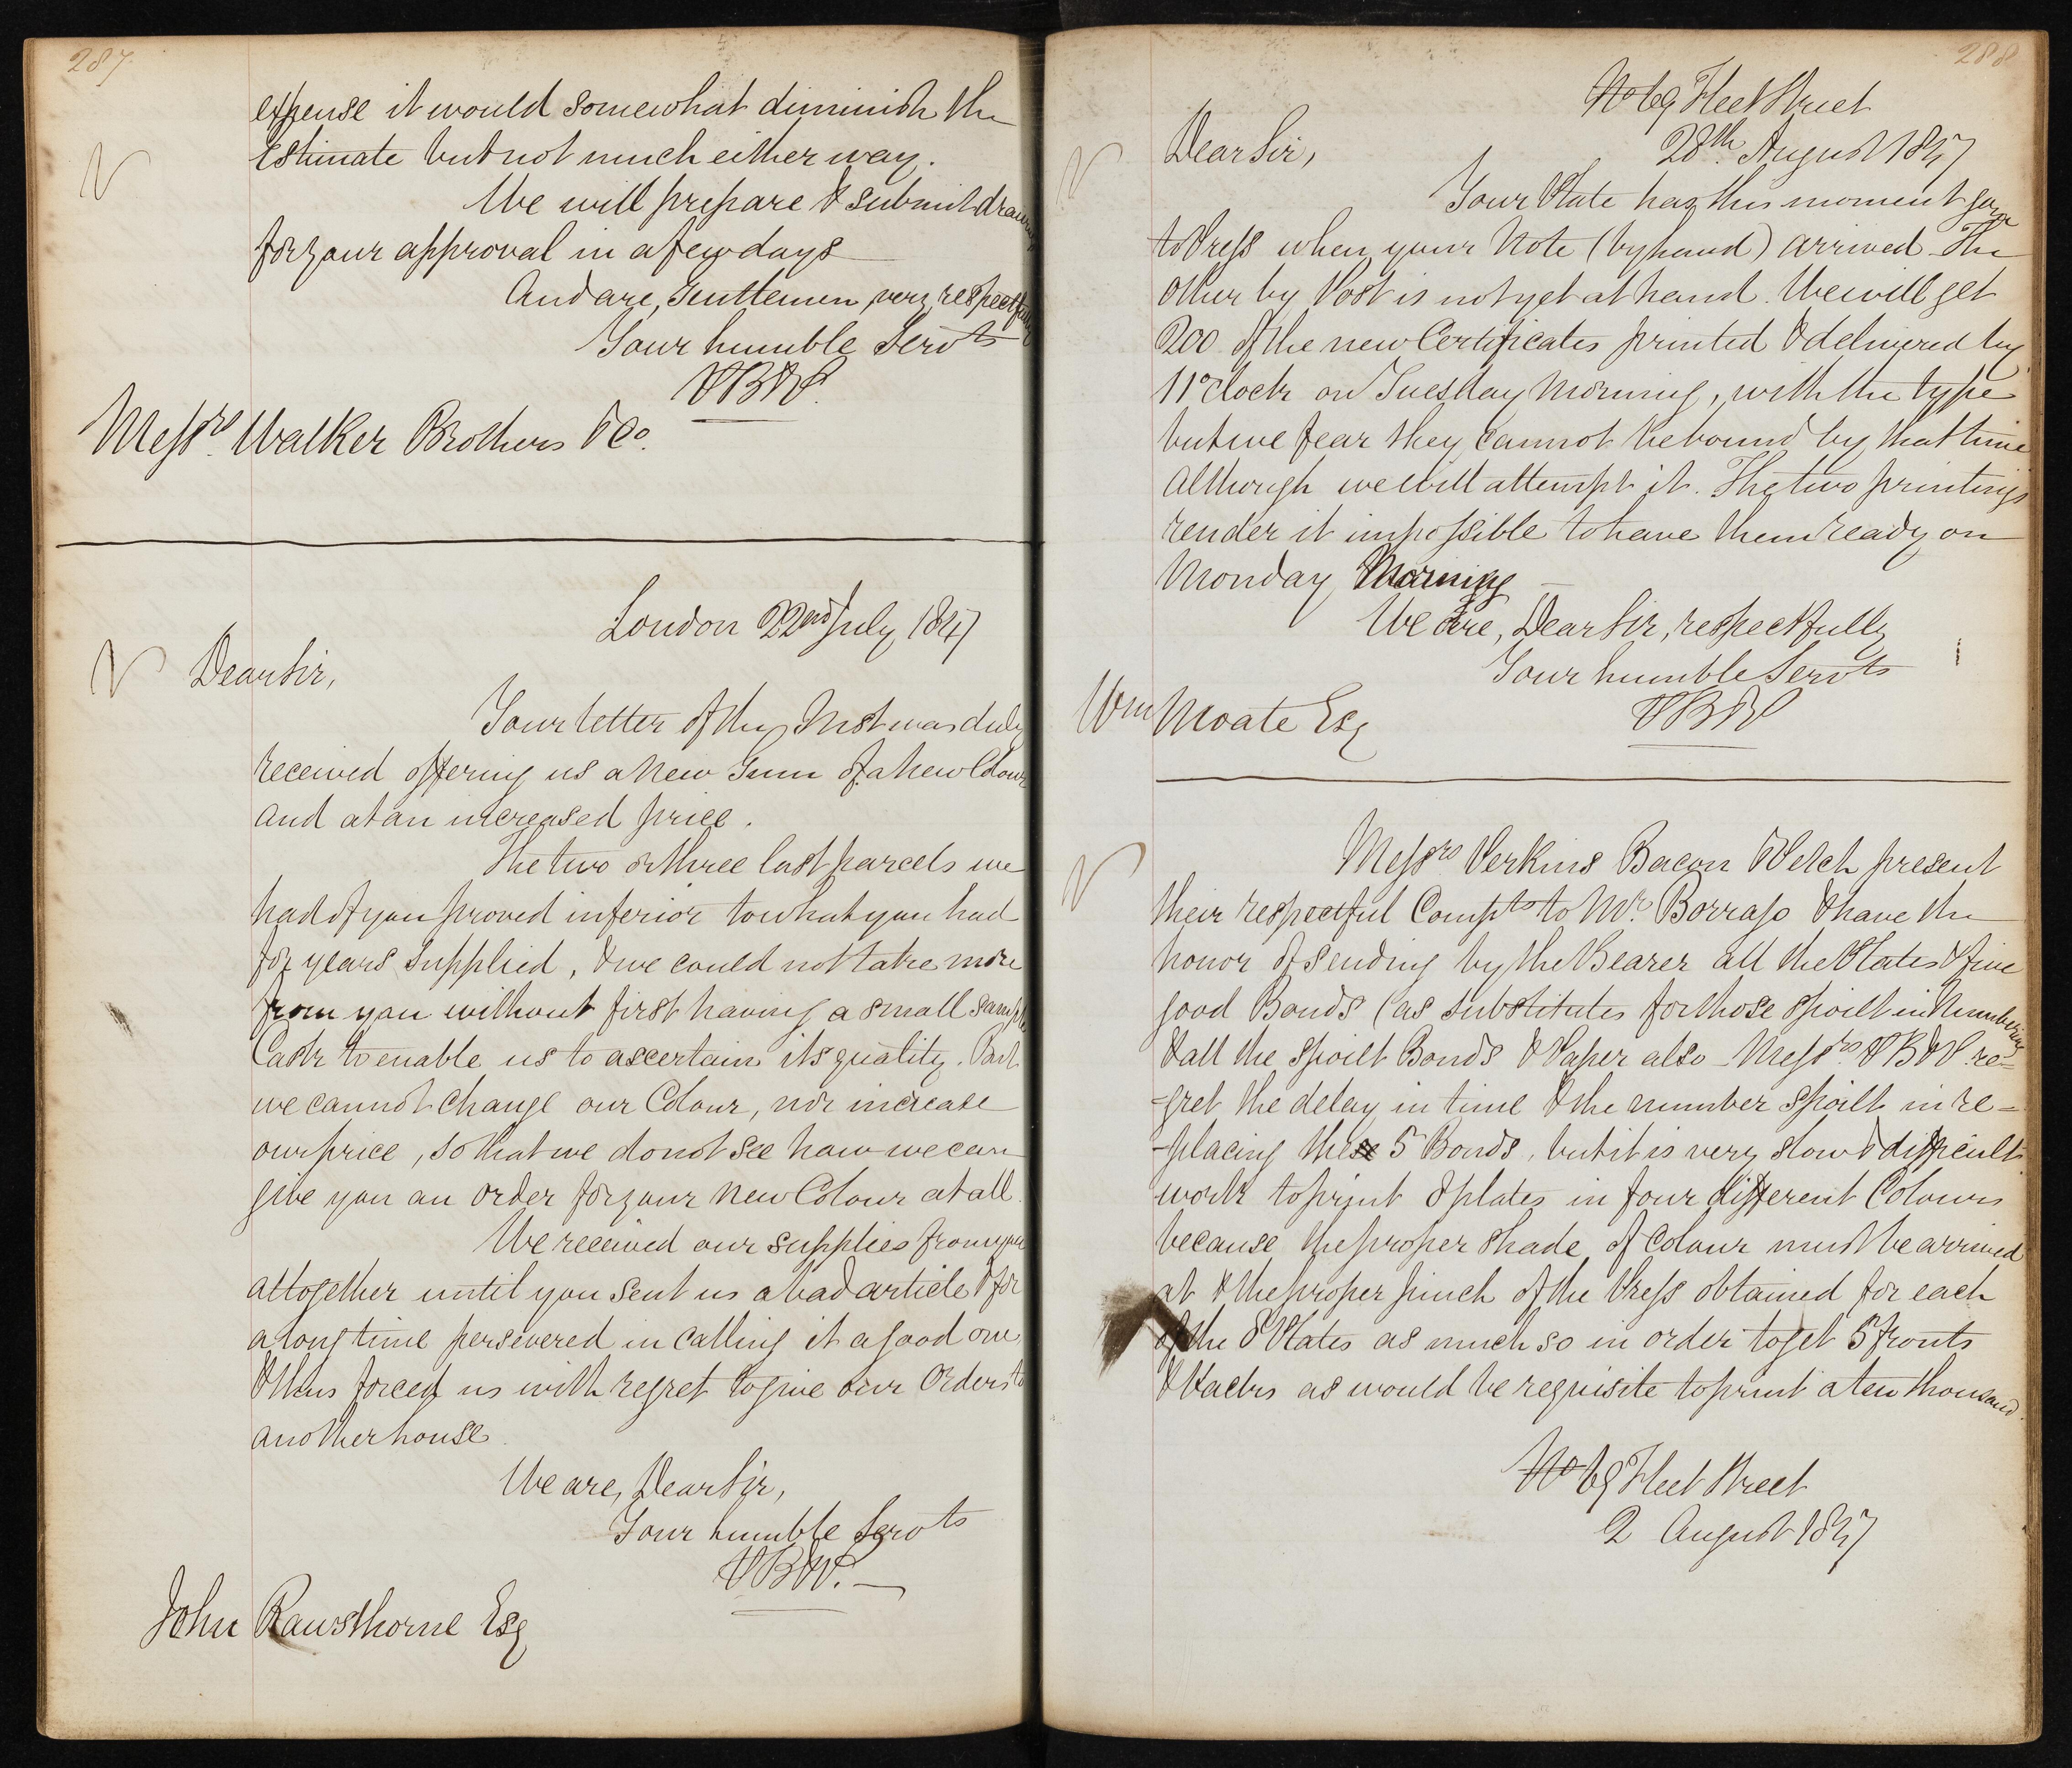 287
expense it would somewhat diminish the
Estimate but not much either way.
We will prepare & submit drawings
for your approval in a few days
And are, Gentlemen, very respectfully
Your humble Servts
PB&P.
Messrs. Walker Brothers & Co.
London 22nd July 1847
Dear Sir,
Your letter of the Inst was duly
received offering us a new Gum of a new Colour
and at an increased price.
The two or three last parcels we
had of you proved inferior to what you had
for years supplied, & we could not take more
from you without first having a small sample
Cask to enable us to ascertain its quality. But
we cannot change our Colour, nor increase
our price, so that we do not see how we can
give you an order for your new Colour at all.
We received our supplies from you
altogether until you sent us a bad article & for
a long time persevered in calling it a good one
& thus forced us with regret to give our Orders to
another house
We are, Dear Sir,
Your humble Servts
PB&P.
John Rawsthorne Esq
288
No 69 Fleet Street
28th. August 1847
Dear Sir,
Your Plate has this moment gone
to Press when your Note (by hand) arrived The
Other by Post is not yet at hand. We will get
200 of the new Certificates printed & delivered by
11 oClock on Tuesday Morning, with the type
but we fear they cannot be bound by that time
Although we will attempt it. The two printings
render it impossible to have them ready on
Monday Morning
We are, Dear Sir, respectfully
Your humble Servts
PB&P
Wm Moate Esq
Messrs Perkins Bacon & Petch present
their respectful Compts to Mr. Borrajo & have the
honor of sending by the Bearer all the Plates & five
good Bonds (as substitutes for those spoilt in Numbering
& all the spoilt Bonds & Paper also – Messrs PB&P. re=
=gret the delay in time & the number spoilt in re=
=placing these 5 Bonds, but it is very slow & difficult
work to print 8 plates in four different Colours
because the proper shade of Colour must be arrived
at & the proper pinch of the Press obtained for each
of the 8 Plates as much so in order to get 5 fronts
& backs as would be requisite to print a ten thousand.
No 69 Fleet Street
2 August 1847